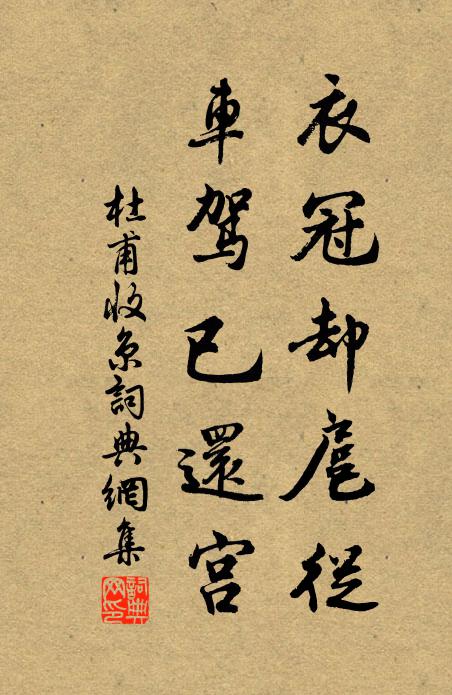 衣冠却扈從
車駕已還宮
杜甫收京詞典網集
詞典網印